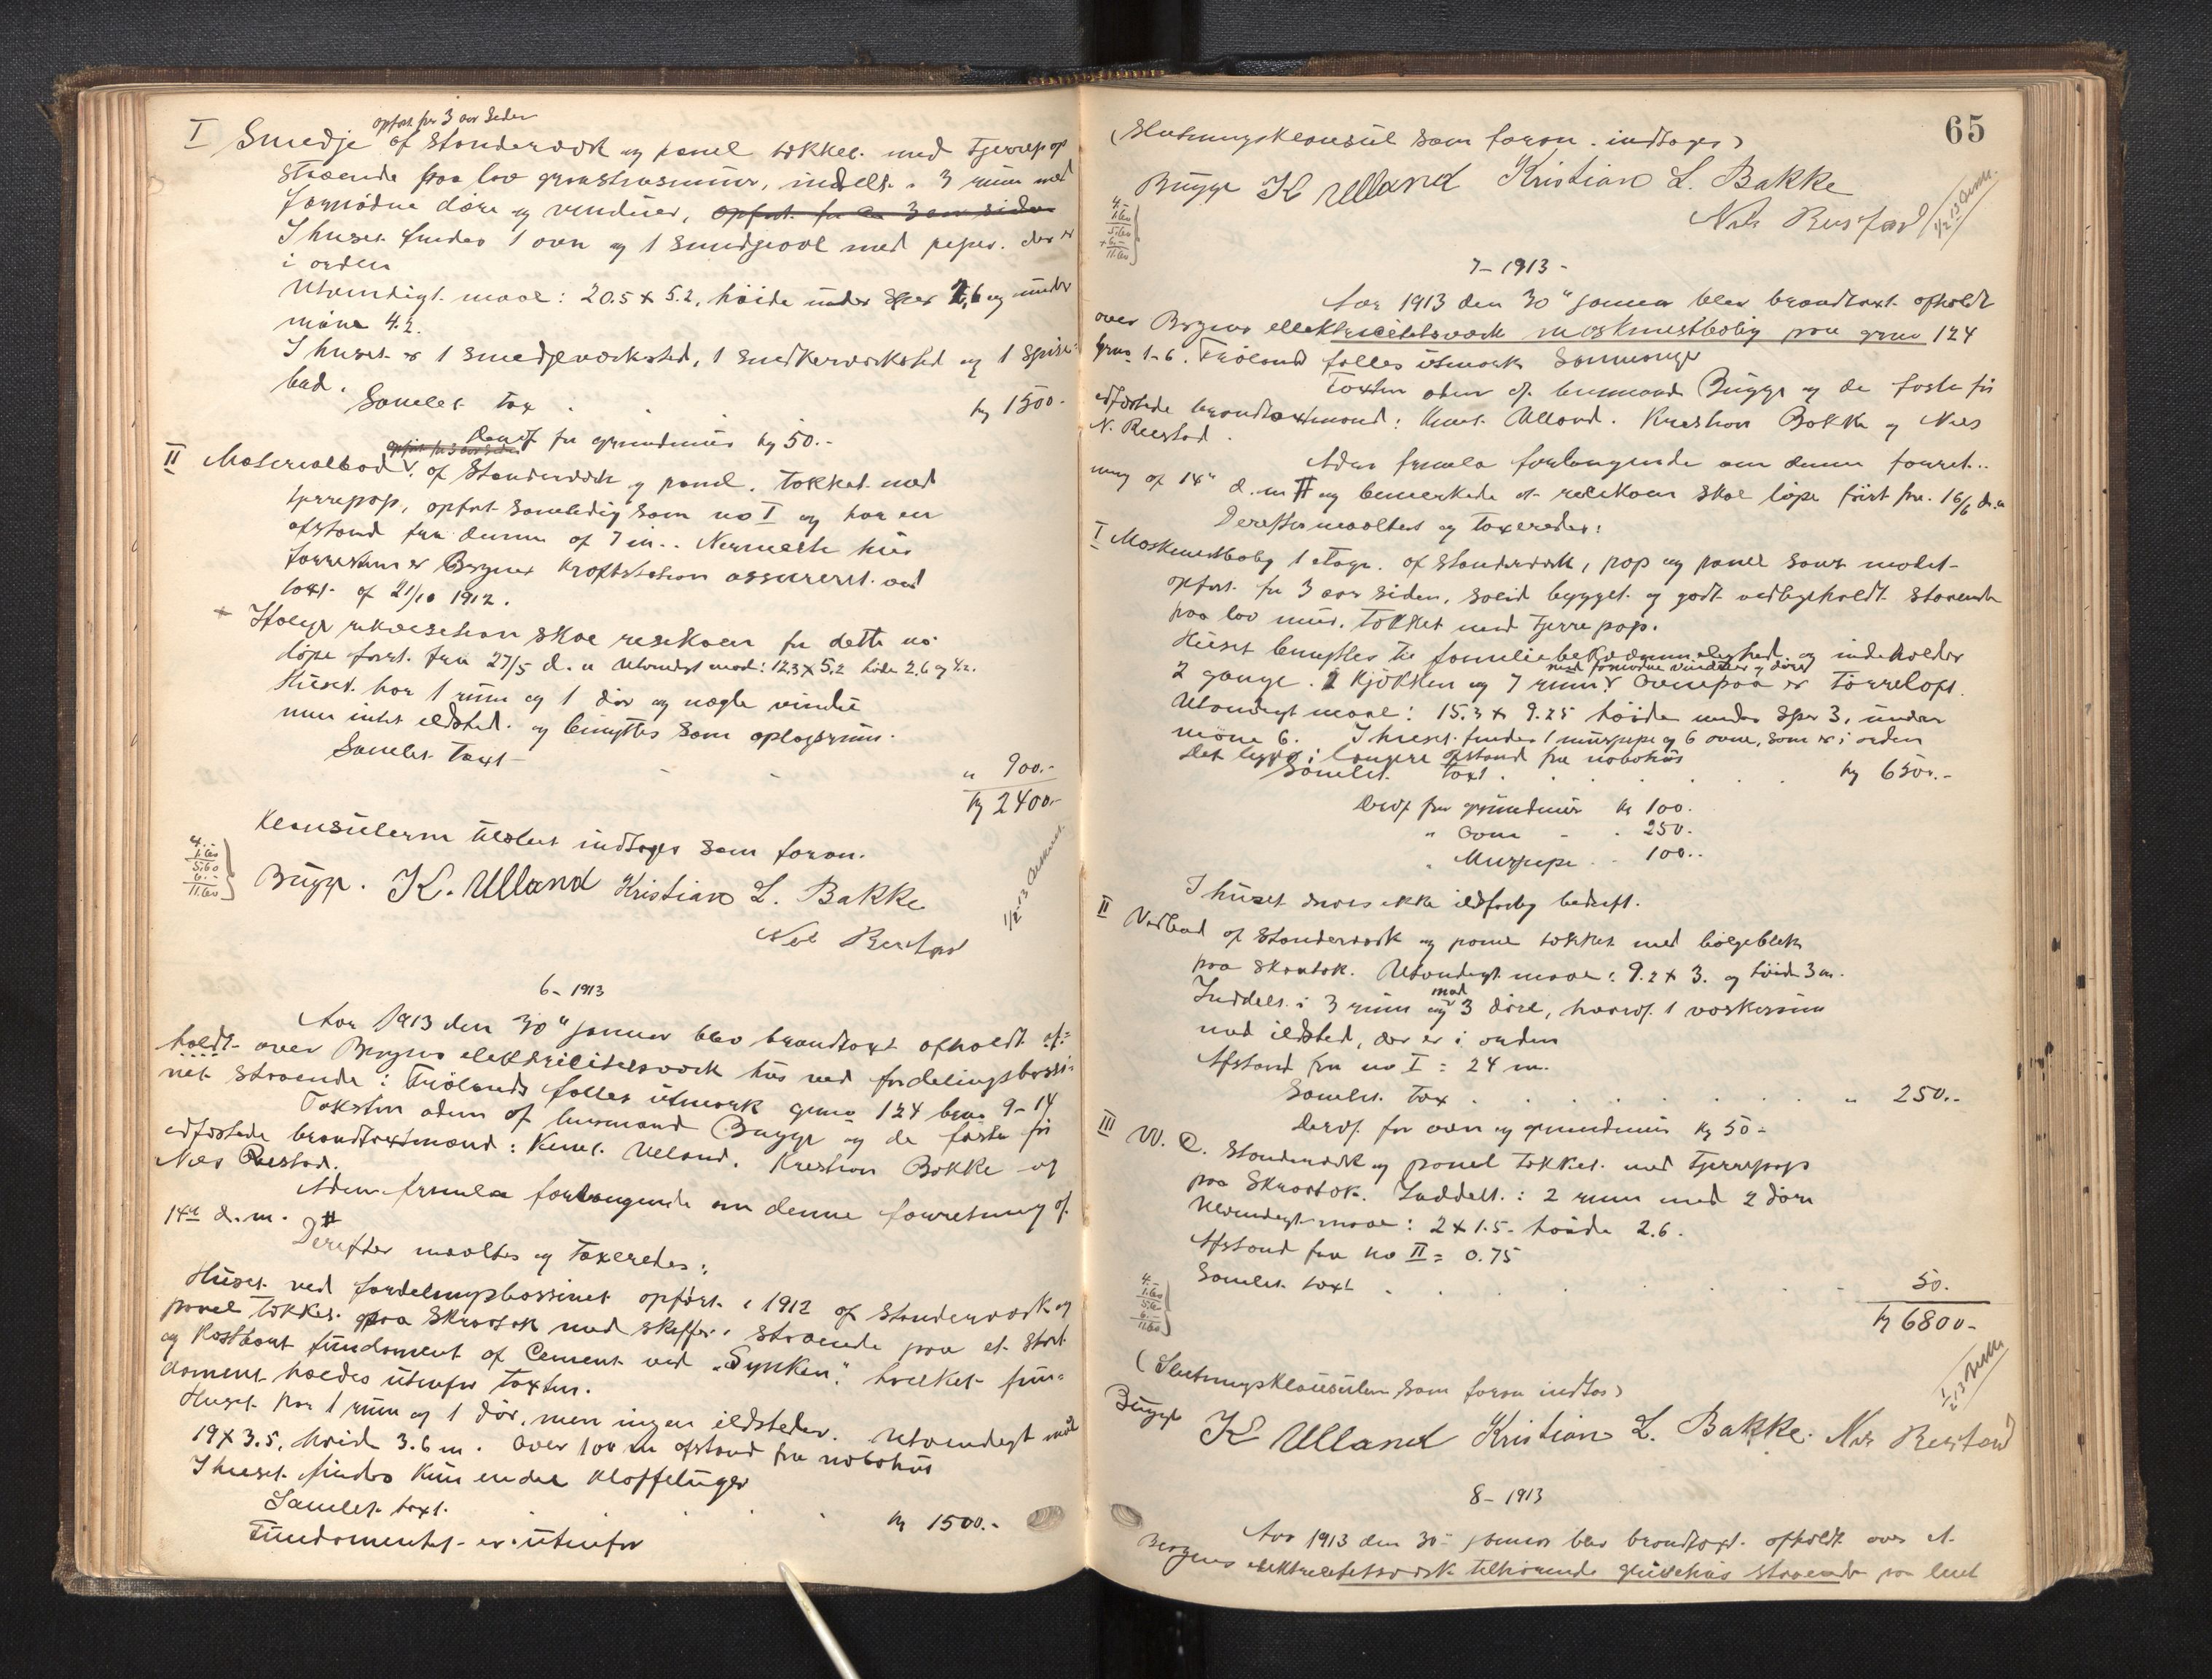 opført for 3 aar siden
I Smedje af Stenderværk og panel tækket med tjærepap
staaende paa lav graastensmur, inddelt i 3 rum med
fornødne døre og vinduer, opført for ca 3 aar siden
I huset findes 1 ovn og 1 smedjeovl med piper. der er
i orden
Utvendigt maal: 20.5 x 5.2, høide under sper 2,6 og under
møne 4.2.
I huset er 1 smedjeværksted, 1 snedkerværksted og 1 spise-
bud.
Samlet tax . . . kr 1500.-
Deraf for grundmur kr 50.-
opført for 3 aar siden
II Materialbod v. af Stenderværk og panel. tækket med
tjærepap, opført samtidig som no I og har en
afstand fra denne af 7 m.. Nærmeste hus
forresten er Bergens Kraftstation assureret ved
taxt af 21/10 1912.
+ Ifølge rekvisition skal risikoen for dette no
løpe først fra 27/5 d. a Utvendigt maal: 12.3 x 5.2 høide 2.6 og 4.2.
Huset har 1 rum og 1 dør og nogle vindu
men intet ildsted. og benyttes som oplagsrum.
Samlet taxt - - - " 900.-
kr 2400.-
Klausulerne tilslut indtages som foran.
4.-
1.60
5.60
6.-
11.60
Bügge. K. Ulland Kristian L. Bakke
Nils Restad
1/2-13
6- 1913
Aar 1913 den 30" januar blev brandtaxt afholdt af=
holdt over Bergens elektricitetsværk hus ved fordelingsbassi-
net staaende i Frølands fælles utmark gmo 124 bno 9-14
Taksten aden af lensmand Bügge og de faste for
edfæstede brandtaxtmænd: Knut Ulland. Kristian Bakke og
Nils Restad.
Aden fremla forlangende om denne forretning af
14de d. m. #
Derefter maaltes og taxeredes:
Huset ved fordelingsbassinet opført i 1912 af Stenderværk og
panel tækket paa skraatak med skiffer. staaende paa et stort
og kostbart fundament af Cement ved "Synken", hvilket fun=
dament holdes utenfor taxten.
Huset har 1 rum og 1 dør, men ingen ildsteder. Utvendigt maal
19 x 3.5, høide 3.6 m. Over 100 m afstand fra nabohus
I huset findes kun endel klaffeluger
Samlet taxt. . . . kr 1500.-
Fundamentet er utenfor
65
(Slutningsklausul som foran indtages)
Bügge K Ulland Kristian L. Bakke
Nils Restad
1/2 13
4.-
1.60
5.60
6.-
11.60
7- 1913 -
Aar 1913 den 30" januar blev brandtaxt afholdt
over Bergens ellektricitetsværk maskinestbolig paa gmo 124
bno 1-6. Frøland fælles utmark Samnanger
Taxten aden af lensmand Bügge og de faste for
edfæstede brandtaxtmænd: Knut Ulland. Kristian Bakke og Nils
N. Restad.
Aden fremla forlangende om denne forret..
ning af 14" d. m # og bemerkede at risikoen skal løpe først fra 16/6 d. a
Derefter maaltes og taxeredes:
I Maskinestbolig 1 etage. af stenderværk, pap og panel samt malet-
opført for 3 aar siden, solid bygget og godt vedligeholdt staaende
paa lav mur. tækket med tjærepap.
Huset benyttes til familiebekvemmelighed og indeholder
med fornødne vinduer og døre
2 gange. 1 kjøkken og 7 rum v. Ovenpaa er tørreloft.
Utvendigt maal: 15.3 x 9.25 høide under sper 3, under
møne 6. I huset findes 1 murpipe og 6 ovne, som er i orden
Det ligger i længere afstand fra nabohus
Samlet taxt . . . kr 6500.-
Deraf for grundmur kr 100.
" Ovne - . 250.
" Murpipe . . 100..
I huset drives ikke ildsfarlig bedrift.
II Vedbod af Stenderværk og panel tækket med bølgeblik
paa skraatak. Utvendigt maal: 9.2 x 3. og høide 3 m.
Inddelt i 3 rum og med 3 døre, hvoraf 1 vaskerum
med ildsted, der er i orden
Afstand fra no I = 24 m.
Samlet tax . . . " 250..
Deraf for ovn og grundmur kr 50 -
III W. C. Stenderværk og panel tækket med tjærepap
paa skraatak. Inddelt i 2 rum med 2 døre
Utvendigt maal: 2 x 1.5 - høide 2.6.
Afstand fra no II = 0.75
Samlet taxt . . . 50.
kr 6800-
4.-
1.60
5.60
6.-
11.60
(Slutningsklausulen som foran indtas)
1/2 13
Bügge K Ulland Kristian L. Bakke. Nils Restad
8- 1913
Aar 1913 den 30- januar blev brandtaxt. afholdt over et
Bergens elektricitetsværk tilhørende staaende paa